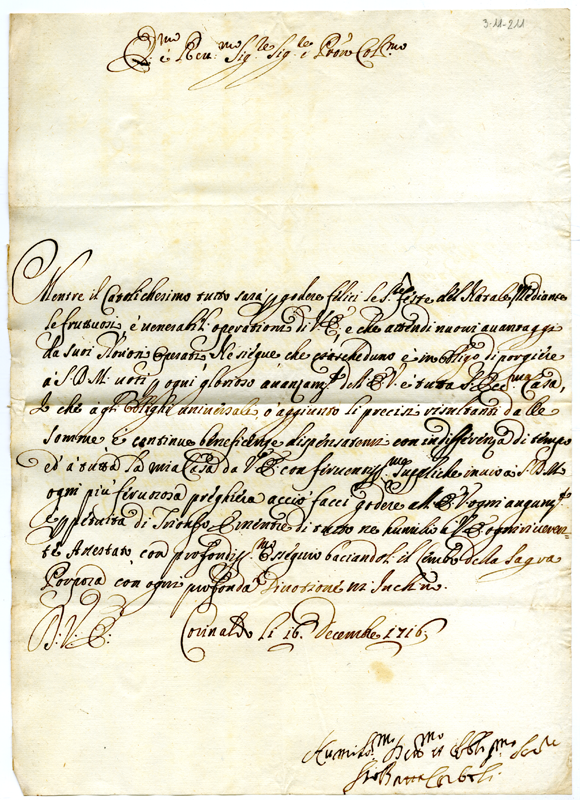 3-11-211
Em.mo e Reu.mo Sig.re Sig.re e Pròn Col.mo
Mentre il Catolichesimo tutto sarà p godere felici le S.te feste del Natale Mediante
le fruttuosi, è venerabili operationi di V.E, è che attendi nuovi auantaggi
da suoi Gloriosi Operati Ne siegue che ciascheduno è in obligo di porgiere
à S.D.M. uoti p ogni glorioso auanzam.to dell E.V. è tutta Ecc.ma Casa,
Io che à gl' oblighi universale ò aggiunto li precisi risultanti dalle
somme è continue beneficenze dispensatemi con indifferenza di tempo
ed' à tutta la mia Casa da V.E con feruentiss.me suppliche inuio à S.D.M.
ogni più feruorosa preghiera acciò facci godere all E.V. ogni augum.to
di Trionfo, E mentre di tutto ne humilio à V.E ogni riueren-
te Attestato con profondiss.mo Ossequio baciandoli il Lembo della Sagra
Porpora cón ogni profonda Diuotione m' Inchino.
D: V: E: Corinaldo li 16 Decembre 1716
Humilis.mo Deuo.mo et Obblig.mo Ser.re
Gio Batta